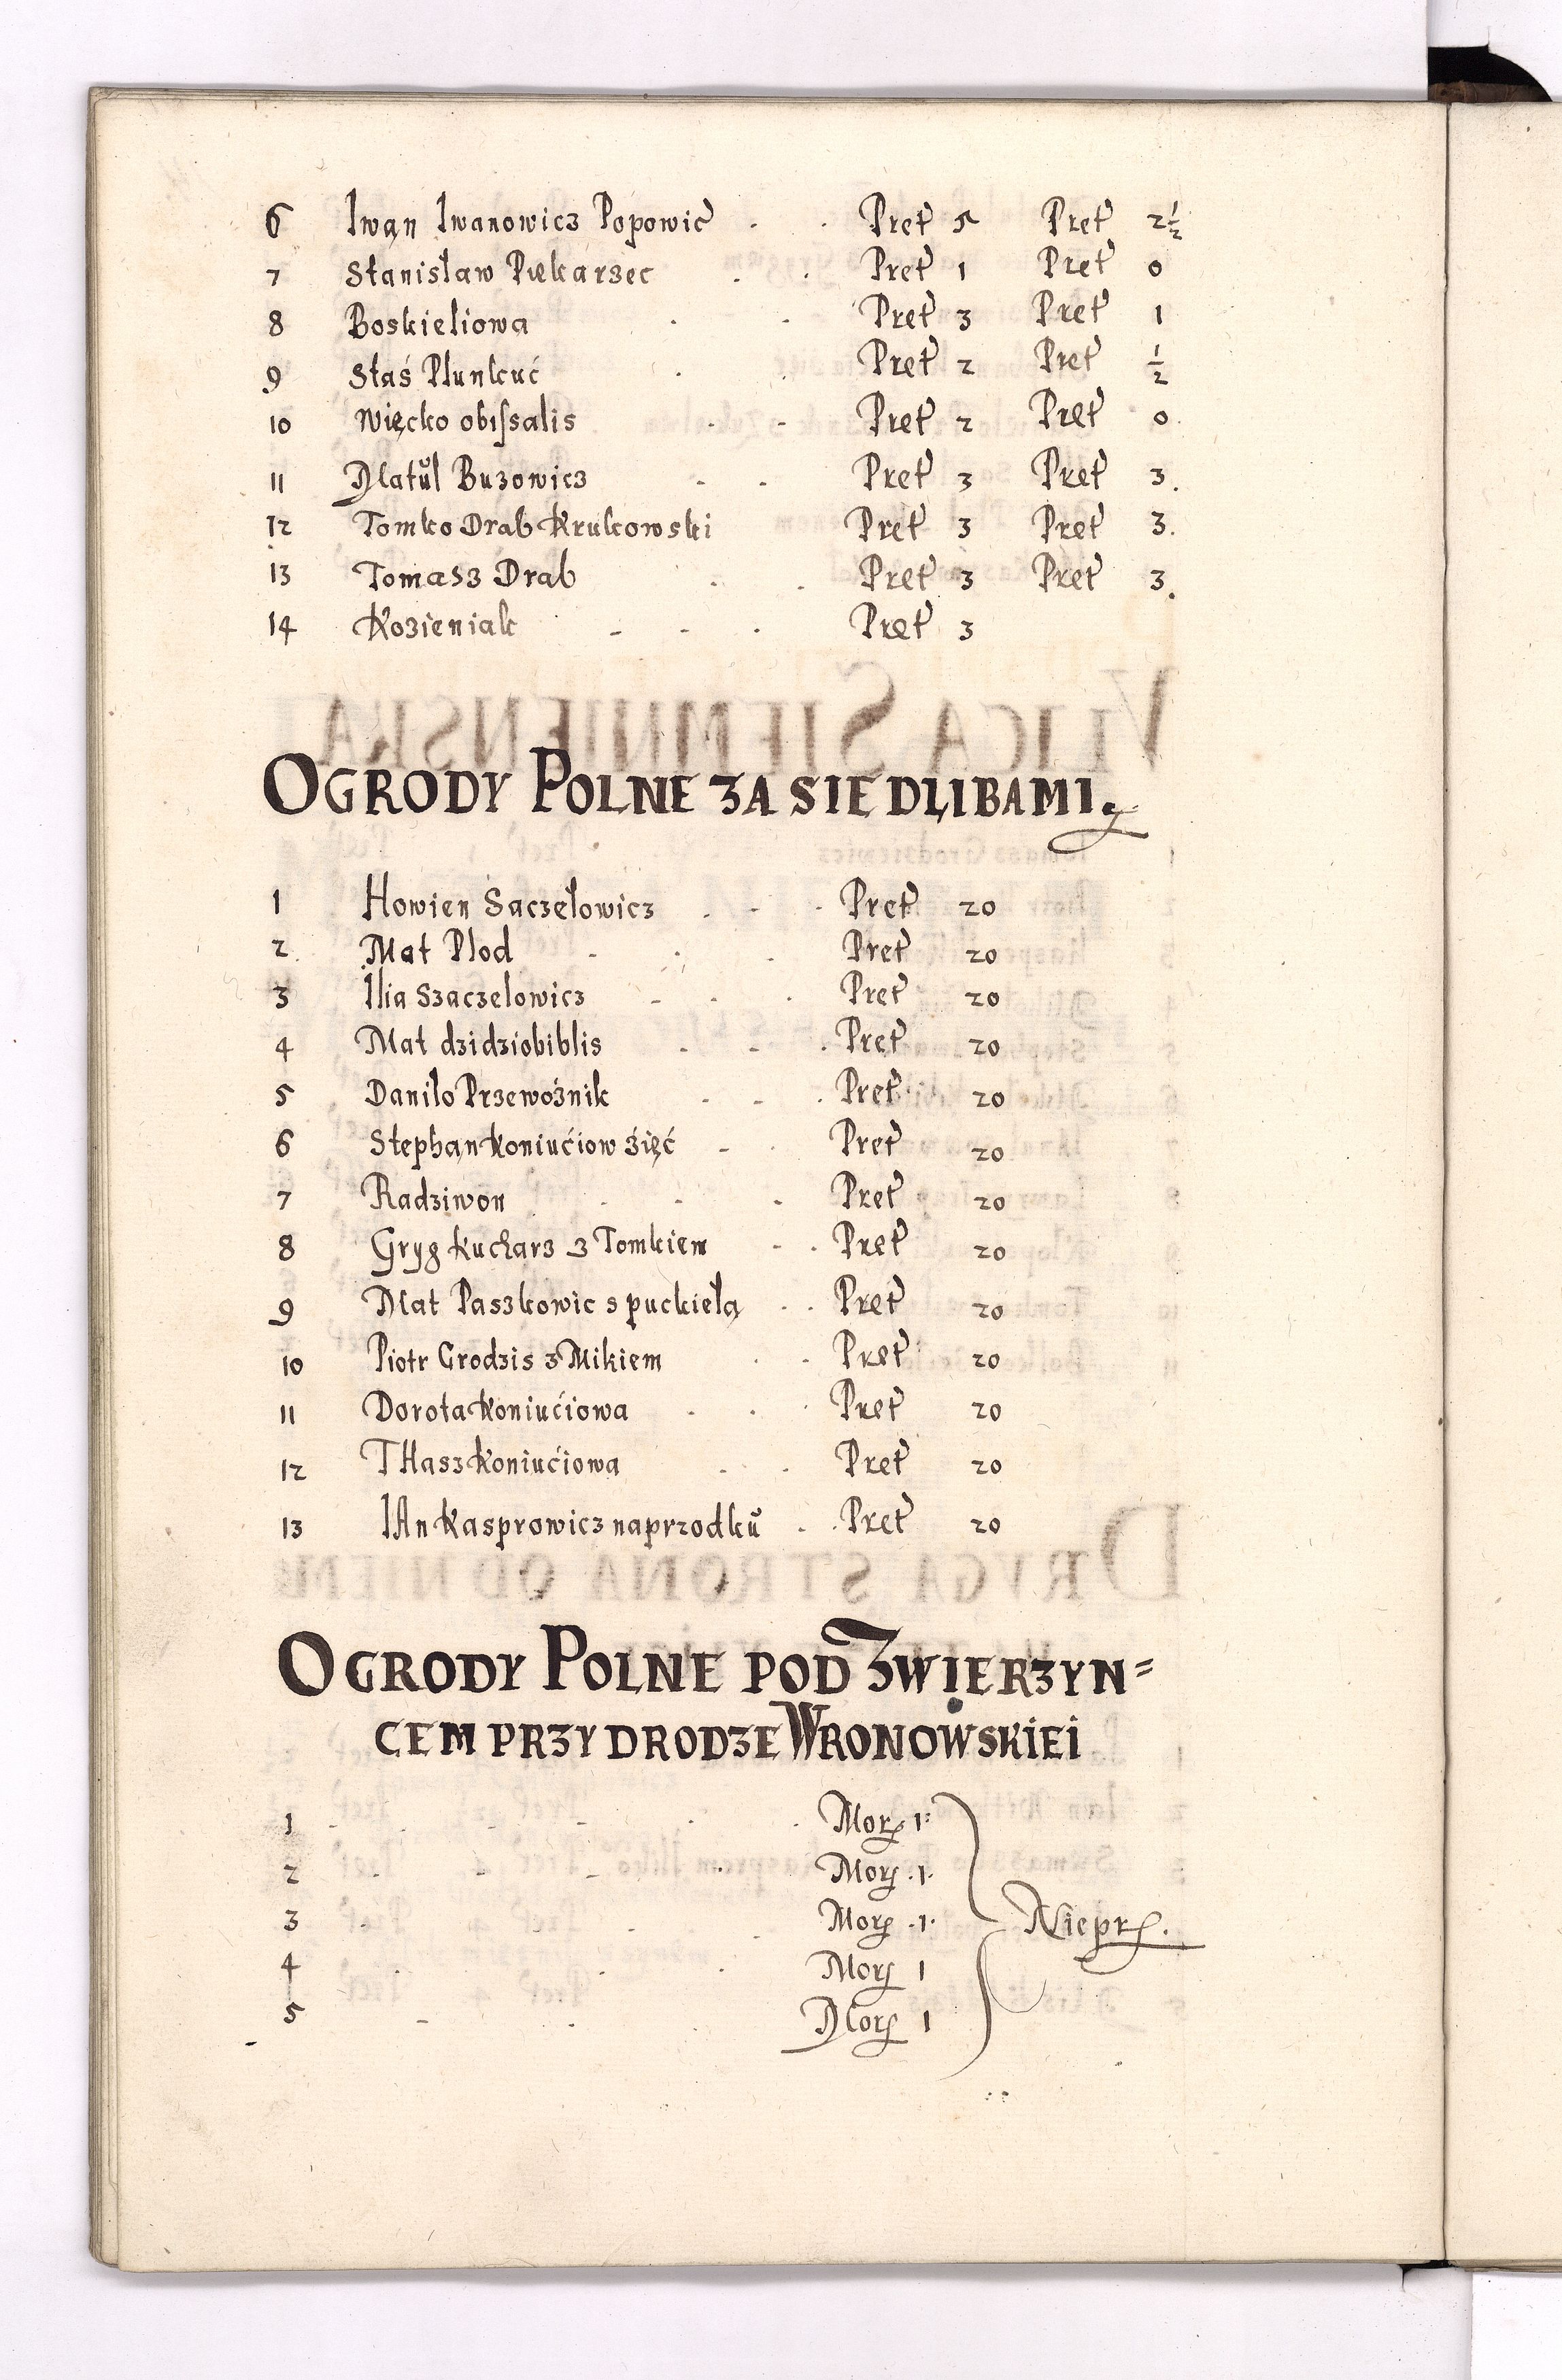 6 Iwan Iwanowicz Popowic Pret 5 Pret 2½
7 Stanisław Piekarzec Pret 1 Pret 0
8 Boskieliowa Pret 3 Pret 1
9 Staś Plunkuć Pret 2 Pret ½
10 Więcko obiſsalis Pret 2 Pret 0
11 Matŭl Buzowicz Pret 3 Pret 3.
12 Tomko Drab Krukowski Pret 3 Pret 3.
13 Tomasz Drab Pret 3 Pret 3.
14 Kozieniak Pret 3
OGRODY POLNE ZA SIEDLIBAMI.
1 Howien Saczełowicz Pret 20
2 Mat Plod Pret 20
3 Ilia Szaczelowicz Pret 20
4 Mat dzidziobiblis Pret 20
5 Daniło Przewoźnik Pret 20
6 Stephan Koniućiow Źięć Pret 20
7 Radziwon Pret 20
8 Gryg Kucharz z Tomkiem Pret 20
9 Mat Paszkowic s puckiełą Pret 20
10 Piotr Grodzis z Mikiem Pret 20
11 Dorota Koniućiowa Pret 20
12 THasz Koniućiowa Pret 20
13 IAn Kasprowicz na przodkŭ Pret 20
OGRODY POLNE POD ZWIERZYN=
CEM PRZY DRODZE WRONOWSKIEI
1 Morg 1
2 Morg 1
3 Morg 1 Niepr.
4 Morg 1
5 Morg 1